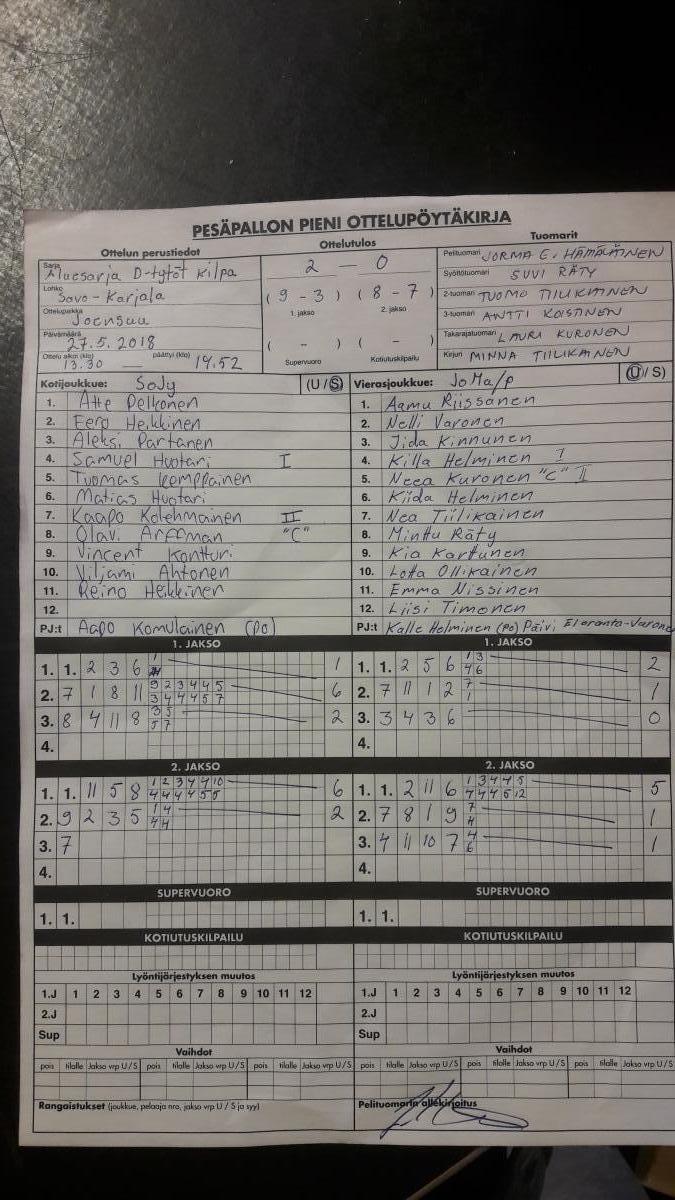 PESÄPALLON PIENI OTTELUPÖYTÄKIRJA
Ottelun perustiedot
Sarja Aluesarja D-tytöt kilpa
Lohko Savo-Karjala
Ottelupaikka Joensuu
Päivämäärä 27.5.2018
Ottelu alkoi (klo) 13.30 — päättyi (klo) 14.52
Ottelutulos
2 — 0
( 9 - 3 ) ( 8 - 7 )
1. jakso 2. jakso
( - ) ( - )
Supervuoro Kotiutuskilpailu
Tuomarit
Pelituomari JORMA E. HÄMÄLÄINEN
Syöttötuomari SUVI RÄTY
2-tuomari TUOMO TIILIKAINEN
3-tuomari ANTTI KOISTINEN
Takarajatuomari LAURI KURONEN
Kirjuri MINNA TIILIKAINEN
Kotijoukkue: SoJy (U / S)
1. Atte Pelkonen
2. Eero Heikkinen
3. Aleksi Partanen
4. Samuel Huotari I
5. Tuomas Kemppainen
6. Matias Huotari
7. Kaapo Kolehmainen II
8. Olavi Arffman "C"
9. Vincent Kontturi
10. Viljami Ahtonen
11. Reino Heikkinen
12.
PJ:t Aapo Komulainen (PO)
Vierasjoukkue: JoMa/p (U / S)
1. Aamu Riissanen
2. Nelli Varonen
3. Iida Kinnunen
4. Killa Helminen I
5. Neea Kuronen "C" II
6. Kiida Helminen
7. Nea Tiilikainen
8. Minttu Räty
9. Kia Karttunen
10. Lotta Ollikainen
11. Emma Nissinen
12. Liisi Timonen
PJ:t Kalle Helminen (PO) Päivi Eloranta-Varonen
1. JAKSO
1. 1. 2 3 6 1
2. 7 1 8 11 9 2 3 4 4 5 6
3 4 4 4 5 7
3. 8 4 11 8 3 5 2
5 7
4.
1. JAKSO
1. 1. 2 5 6 1 3 2
4 6
2. 7 11 1 2 7 1
1
3. 3 4 3 6 0
4.
2. JAKSO
1. 1. 11 5 8 1 2 3 4 4 10 6
4 4 4 4 5 5
2. 9 2 3 5 1 4 2
4 4
3. 7
4.
2. JAKSO
1. 1. 2 11 6 1 3 4 4 5 5
4 4 4 5 12
2. 7 8 1 9 7 1
4
3. 4 11 10 7 4 1
6
4.
SUPERVUORO
1. 1.
SUPERVUORO
1. 1.
KOTIUTUSKILPAILU
KOTIUTUSKILPAILU
Lyöntijärjestyksen muutos
1.J 1 2 3 4 5 6 7 8 9 10 11 12
2.J
Sup
Lyöntijärjestyksen muutos
1.J 1 2 3 4 5 6 7 8 9 10 11 12
2.J
Sup
Vaihdot
pois tilalle Jakso vrp U / S pois tilalle Jakso vrp U / S pois tilalle Jakso vrp U / S
Vaihdot
pois tilalle Jakso vrp U / S pois tilalle Jakso vrp U / S pois tilalle Jakso vrp U / S
Rangaistukset (joukkue, pelaaja nro, jakso vrp U / S ja syy)
Pelituomarin allekirjoitus